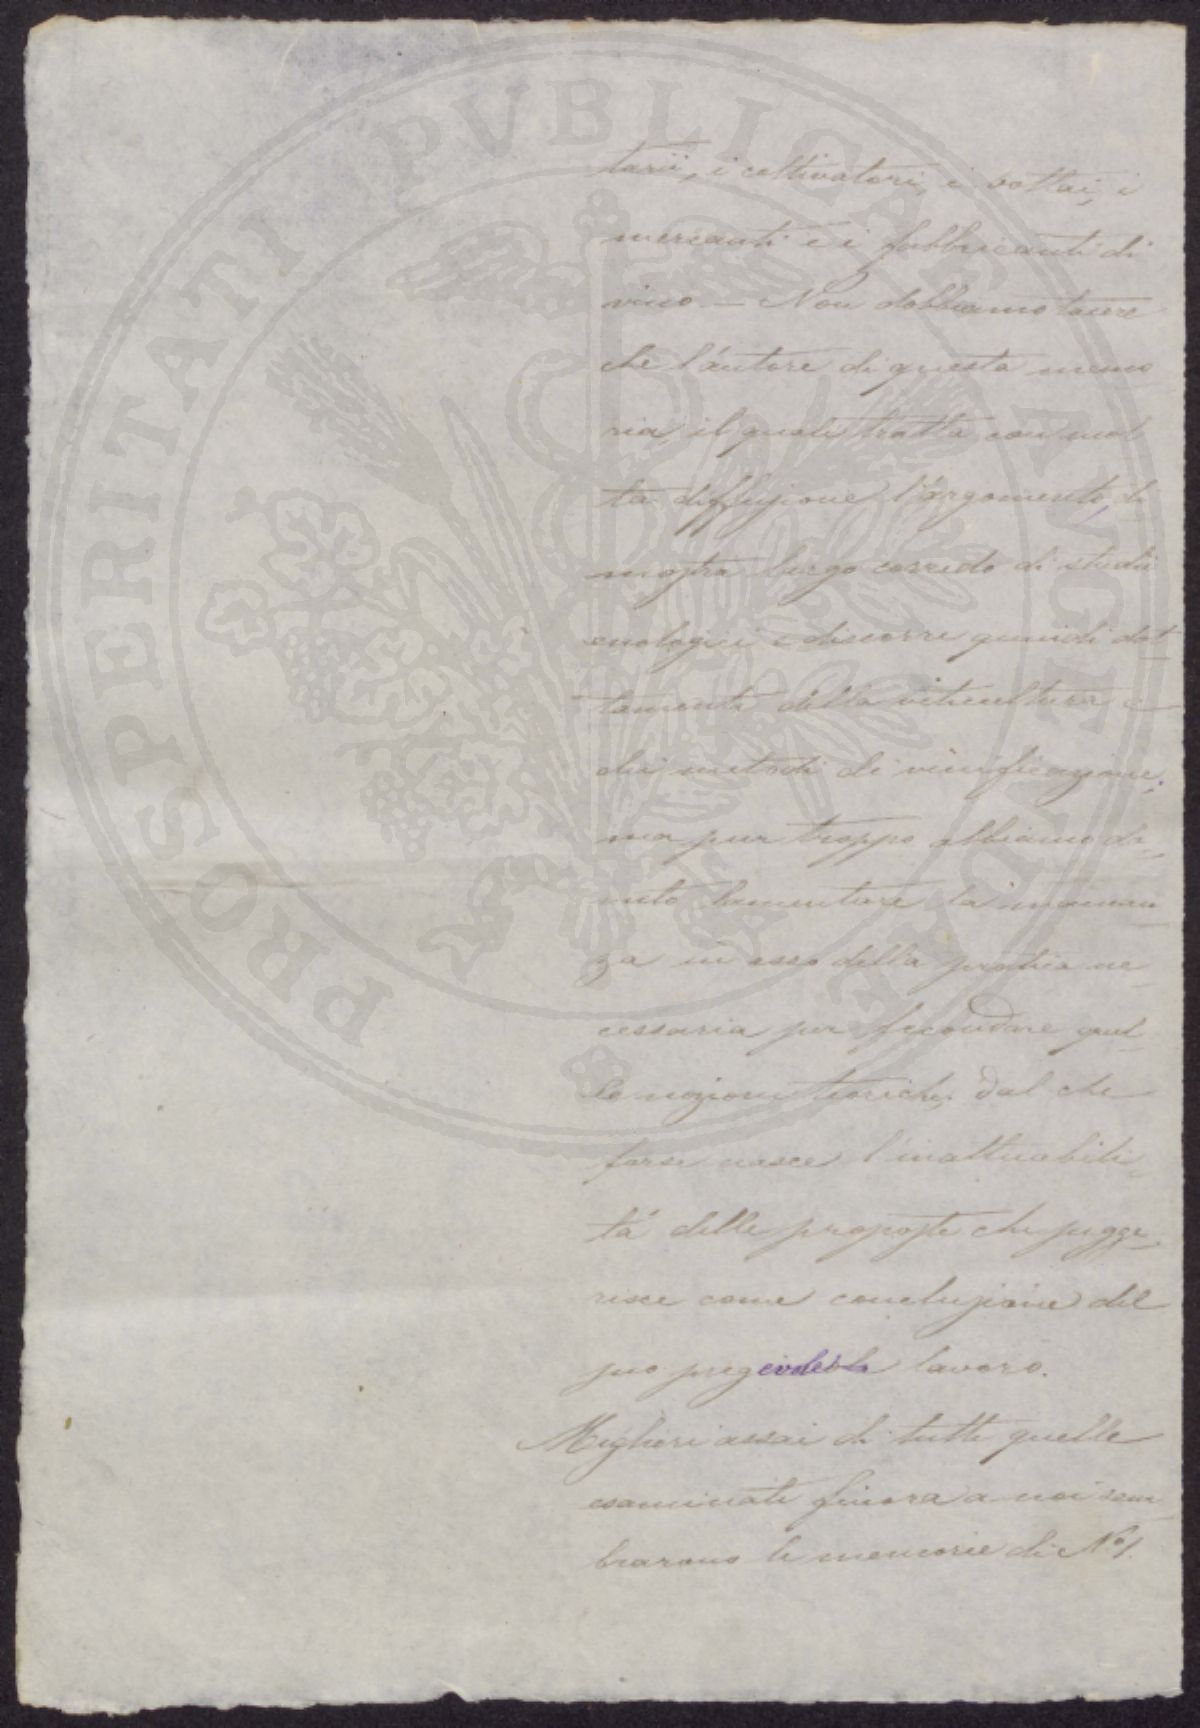 PROSPERITATI PVBLICAE AVGENDAE
tarii, i coltivatori, i bottai, i
mercanti e i fabbricanti di
vino — Non dobbiamo tacere
che l'autore di questa memo
ria, il quale tratta con mol
ta diffusione l'argomento, di
mostra largo corredo di studii
enologici e discorre quindi dot-
tamente della viticultura e
dei metodi di vinificazione;
ma pur troppo abbiamo do-
vuto lamentare la mancan
za in esso della pratica ne-
cessaria per fecondare quel-
le nozioni teoriche, dal che
forse nasce l'inattuabili-
tá delle proposte che sugge-
risce come conclusione del
suo pregevole lavoro.
Migliori assai di tutte quelle
esaminate finora a noi sem
brarono le memorie di Nº 1.